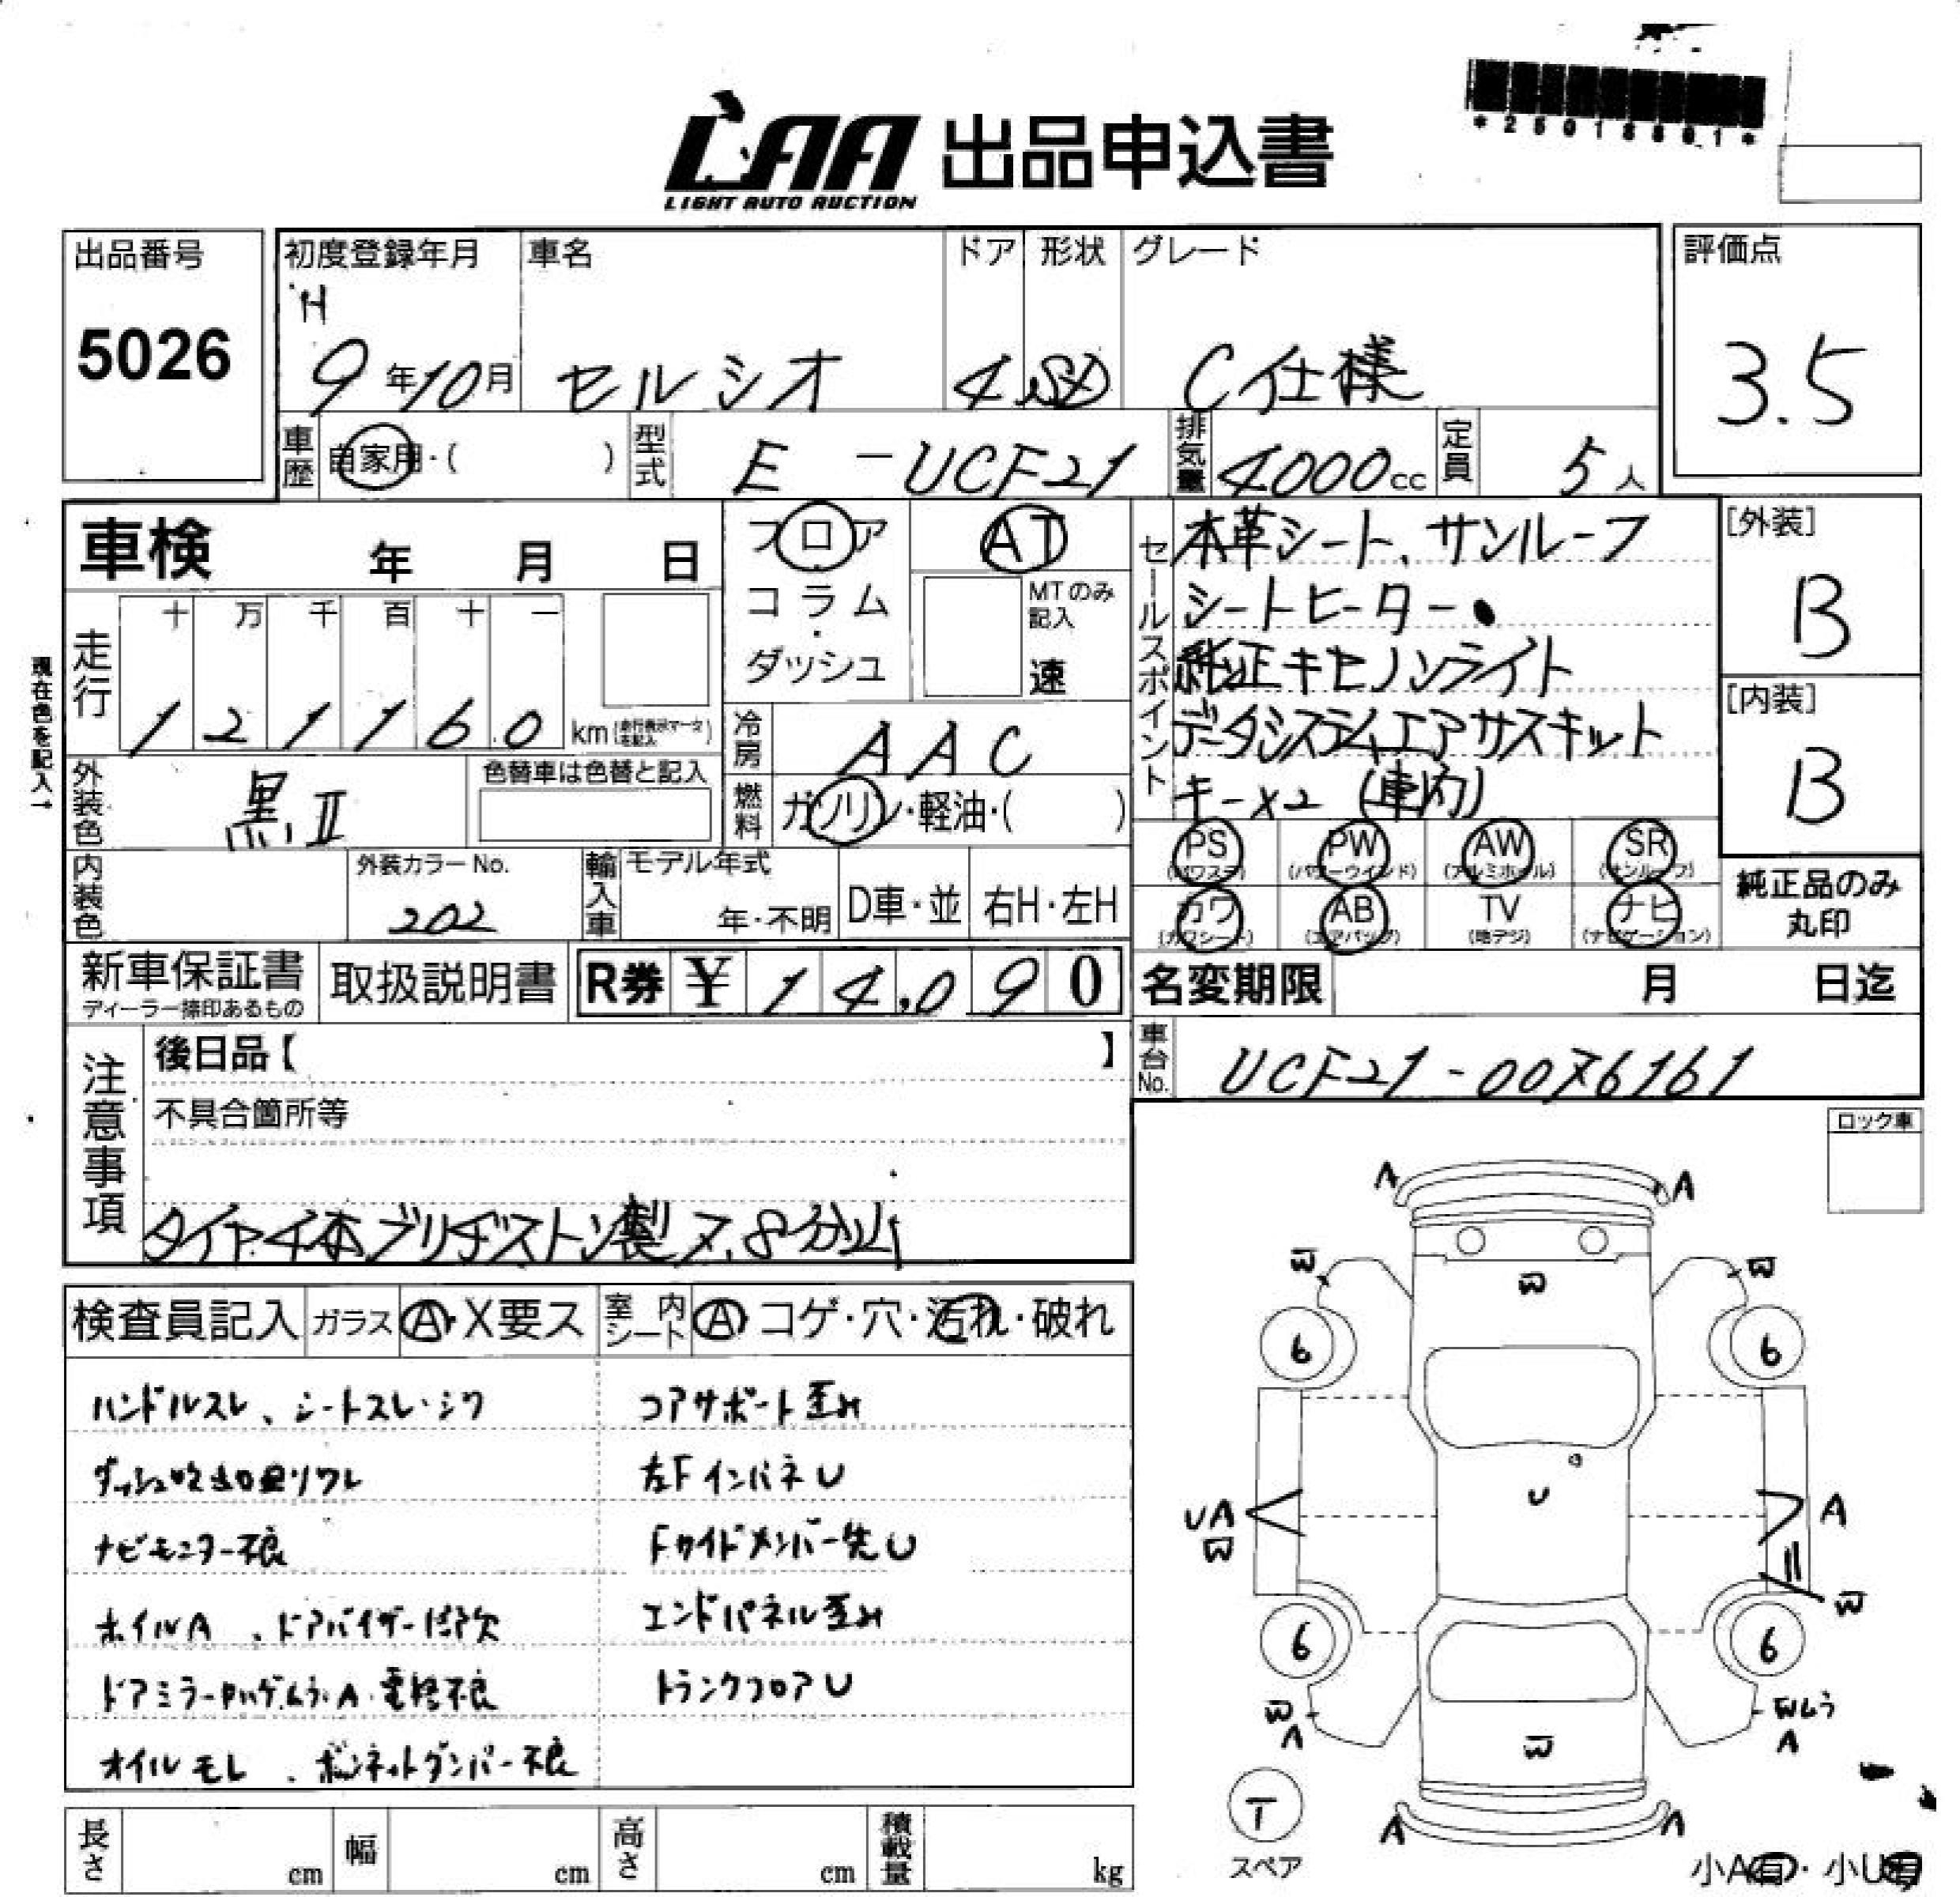 *25018801*
LAA 出品申込書
LIGHT AUTO AUCTION
出品番号
5026
初度登録年月
H
9年10月
車名
セルシオ
ドア
4
形状
SD
グレード
C仕様
評価点
3.5
車歴
自家用・( )
型式
E-UCF21
排気量
4000cc
定員
5人
車検 年 月 日
フロア
コラム
・
ダッシュ
AT
MTのみ
記入
速
セールスポイント
本革シート、サンルーフ
シートヒーター
純正キセノンライト
データシステムエアサスキット
キー×2 (車内)
[外装]
B
[内装]
B
現在色を記入→
走行
十 万 千 百 十 一
1 2 1 1 6 0 km(走行表示マークを記入)
冷房
AAC
外装色
黒II
色替車は色替と記入
燃料
ガソリン・軽油・( )
PS PW AW SR
(パワステ) (パワーウインド) (アルミホイル) (サンルーフ)
カワ AB TV ナビ
(カワシート) (エアバッグ) (地デジ) (ナビゲーション)
純正品のみ
丸印
内装色
外装カラーNo.
202
輸入車
モデル年式
年・不明
D車・並
右H・左H
新車保証書
ディーラー捺印あるもの
取扱説明書
R券 ¥ 14,090
名変期限 月 日迄
車台No.
UCF21-0076161
注意事項
後日品【 】
不具合箇所等
タイヤ4本ブリヂストン製7.8分山
ロック車
検査員記入
ガラス
A・X要ス
室内シート
A コゲ・穴・汚れ・破れ
ハンドルスレ、シートスレ・シワ
ダッシュ吹出口廻リワレ
ナビモニター不良
ホイルA、ドアバイザー
ドアミラー A・電格不良
オイルモレ、ボンネットダンパー不良
コアサポート歪み
左FインパネU
Fサイドメンバー先U
エンドパネル歪み
トランクフロアU
A A
W W W
6 6
U
UA
W
A
W
6 6
W
A
W
Wムラ
A
T
スペア
A A
小A有・小U有
長さ cm
幅 cm
高さ cm
積載量 kg